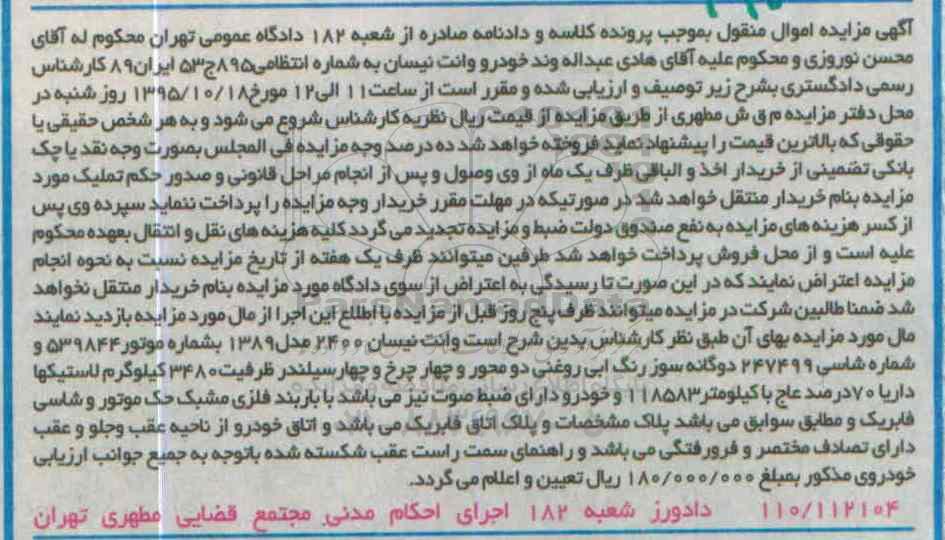 آگهی مزایده اموال منقول بموجب پرونده کلاسه و دادنامه صادره از شعبه ۱۸۲ دادگاه عمومی تهران محکوم له آقای
محسن نوروزی و محکوم علیه آقای هادی عبداله وند خودرو وانت نیسان به شماره انتظامی۸۹۵ج۵۳ ایران۸۹ کارشناس
رسمی دادگستری بشرح زیر توصیف و ارزیابی شده و مقرر است از ساعت۱۱ الی۱۲ مورخ۱۳۹۵/۱۰/۱۸ روز شنبه در
محل دفتر مزایده م ق ش مطهری از طریق مزایده از قیمت ریال نظریه کارشناس شروع می شود و به هر شخص حقیقی یا
حقوقی که بالاترین قیمت را پیشنهاد نماید فروخته خواهد شد ده درصد وجه مزایده فی المجلس بصورت وجه نقد یا چک
بانکی تضمینی از خریدار اخذ و الباقی ظرف یک ماه از وی وصول و پس از انجام مراحل قانونی و صدور حکم تملیک مورد
مزایده بنام خریدار منتقل خواهد شد در صورتیکه در مهلت مقرر خریدار وجه مزایده را پرداخت ننماید سپرده وی پس
از کسر هزینه های مزایده به نفع صندوق دولت ضبط و مزایده تجدید می گردد کلیه هزینه های نقل و انتقال بعهده محکوم
علیه است و از محل فروش پرداخت خواهد شد طرفین میتوانند ظرف یک هفته از تاریخ مزایده نسبت به نحوه انجام
مزایده اعتراض نمایند که در این صورت تا رسیدگی به اعتراض از سوی دادگاه مورد مزایده بنام خریدار منتقل نخواهد
شد ضمنا طالبین شرکت در مزایده میتوانند ظرف پنج روز قبل از مزایده با اطلاع این اجرا از مال مورد مزایده بازدید نمایند
مال مورد مزایده بهای آن طبق نظر کارشناس بدین شرح است وانت نیسان ۲۴۰۰ مدل۱۳۸۹ بشماره موتور۵۳۹۸۴۴ و
شماره شاسی ۲۴۷۴۹۹ دوگانه سوز رنگ ابی روغنی دو محور و چهار چرخ و چهار سیلندر ظرفیت۳۴۸۰ کیلوگرم لاستیکها
داریا ۷۰درصد عاج با کیلومتر۱۱۸۵۸۳ و خودرو دارای ضبط صوت نیز می باشد با باربند فلزی مشبک حک موتور و شاسی
فابریک و مطابق سوابق می باشد پلاک مشخصات و پلاک اتاق فابریک می باشد و اتاق خودرو از ناحیه عقب وجلو و عقب
دارای تصادف مختصر و فرورفتگی می باشد و راهنمای سمت راست عقب شکسته شده باتوجه به جمیع جوانب ارزیابی
خودروی مذکور بمبلغ ۱۸۰/۰۰۰/۰۰۰ ریال تعیین و اعلام می گردد.
۱۱۰/۱۱۲۱۰۴ دادورز شعبه ۱۸۲ اجرای احکام مدنی مجتمع قضایی مطهری تهران
ParsNamadData